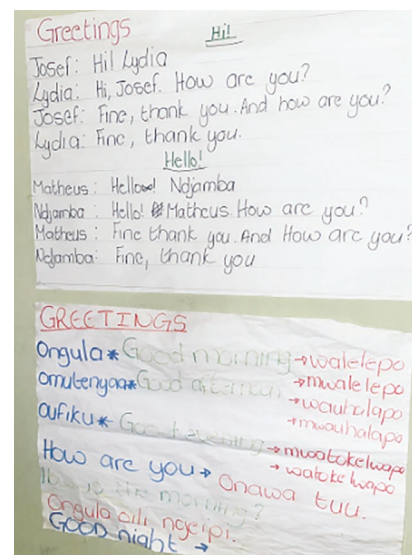 Greetings
Hi!
Josef: Hi! Lydia
Lydia: Hi, Josef. How are you?
Josef: Fine, thank you. And how are you?
Lydia: Fine, thank you.
Hello!
Matheus: Hello! Ndjamba
Ndjamba: Hello! Matheus. How are you?
Matheus: Fine thank you. And How are you?
Ndjamba: Fine, thank you
GREETINGS
Ongula * Good morning → walelepo
→ mwalelepo
omutenyaa * Good afternoon → wauhalapo
→ mwauhalapo
oufiku * Good evening → mwatokelwapo
→ watokelwapo
How are you → Onawa tuu.
is the morning?
Ongula oili ngeipi.
GOOD night →